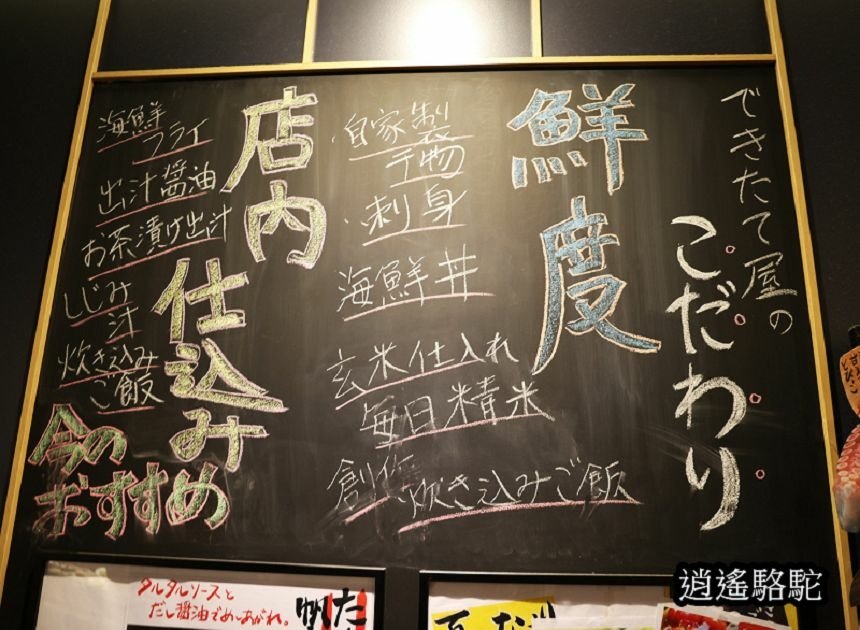 できたて屋の
こだわり
鮮度
・自家製
干物
・刺身
海鮮丼
玄米仕入れ
毎日精米
創作
炊き込みご飯
店内
仕込み
海鮮
フライ
出汁醤油
お茶漬け出汁
しじみ
汁
炊き込み
ご飯
今の
おすすめ
タルタルソースと
だし醤油でめしあがれ。
逍遙駱駝